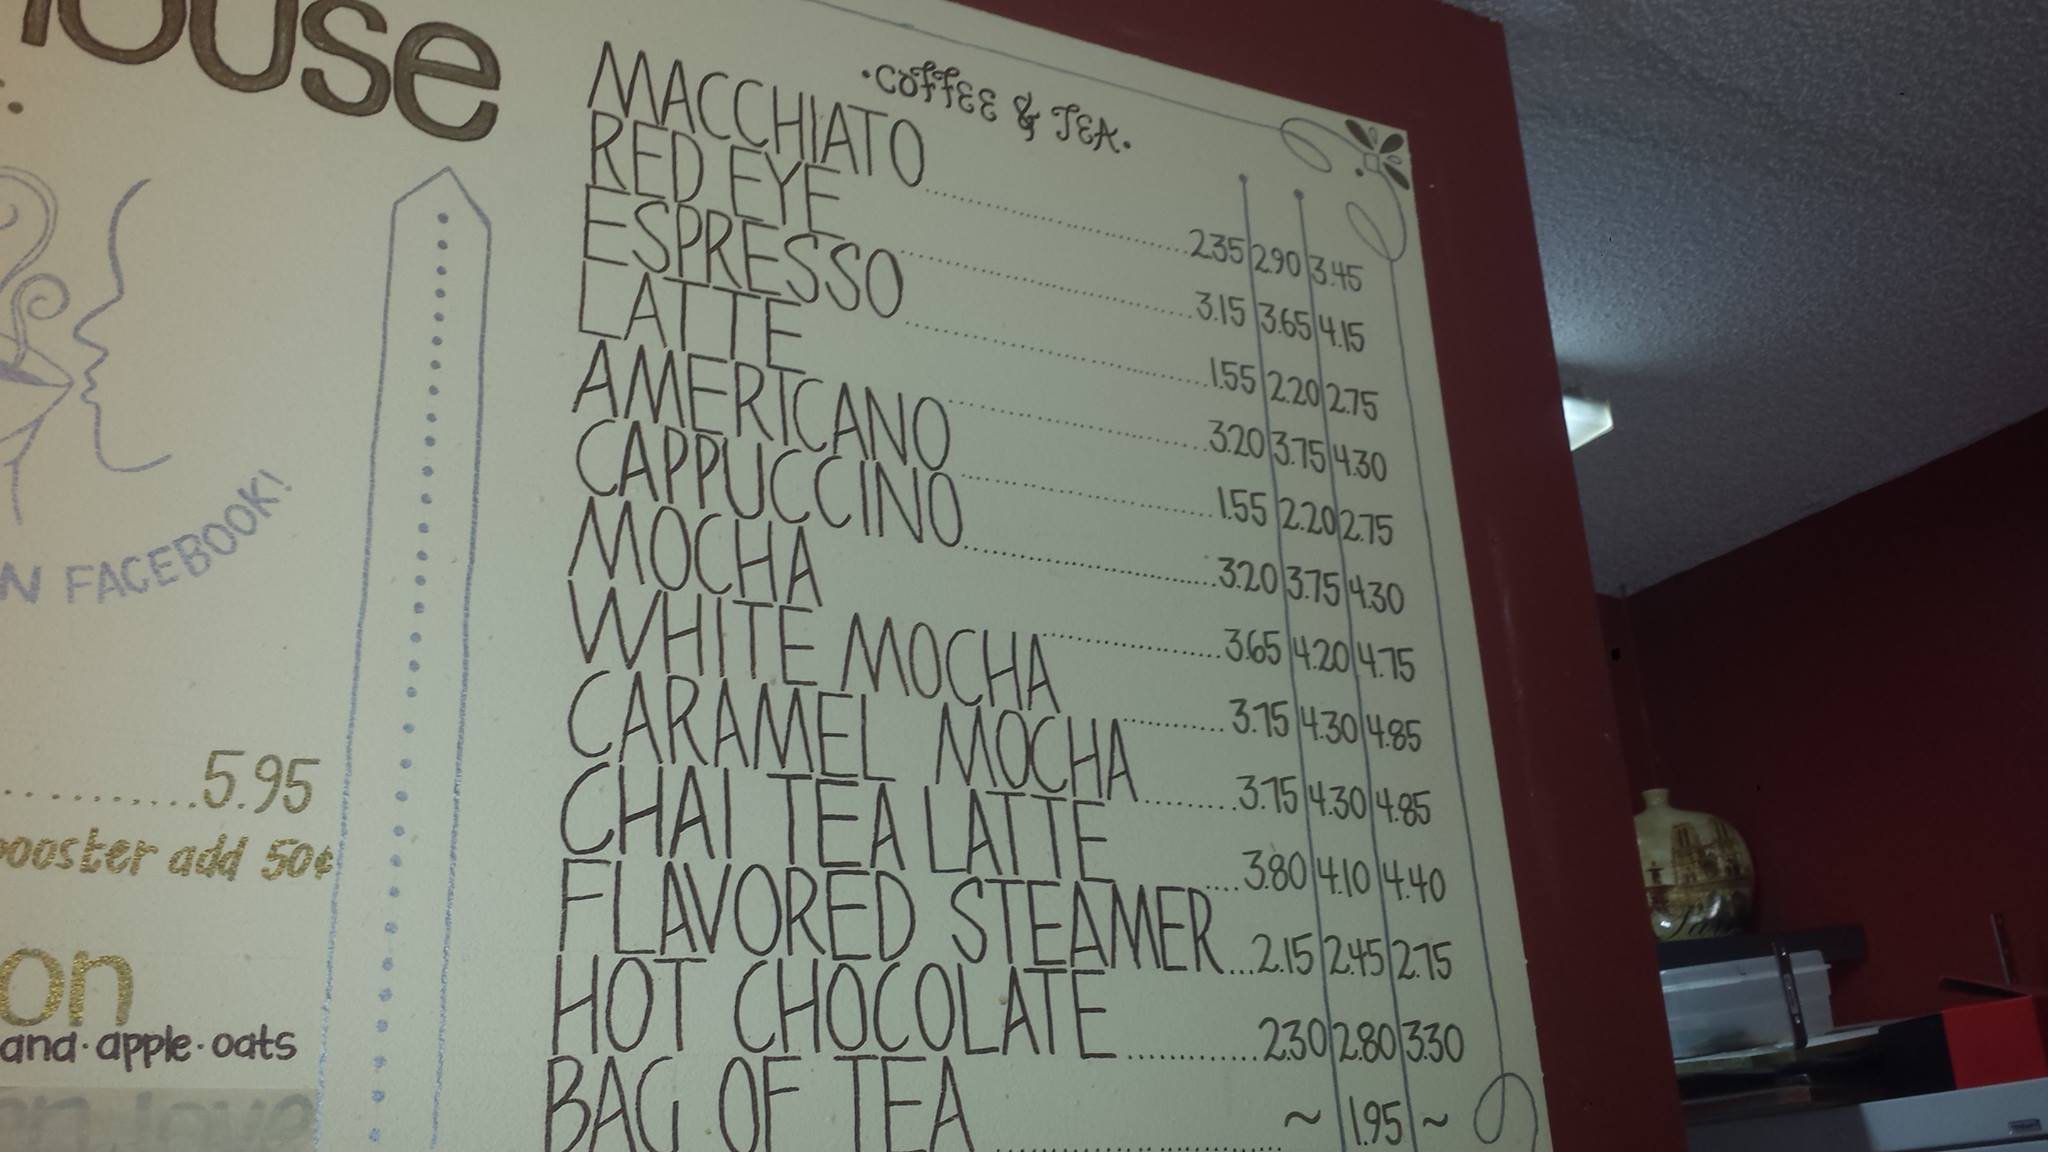 ouse
N FACEBOOK!
5.95
booster add 50¢
on
and·apple·oats
love
·COFFEE & TEA.
MACCHIATO 2.35 2.90 3.45
RED EYE 3.15 3.65 4.15
ESPRESSO 1.55 2.20 2.75
LATTE 3.20 3.75 4.30
AMERICANO 1.55 2.20 2.75
CAPPUCCINO 3.20 3.75 4.30
MOCHA 3.65 4.20 4.75
WHITE MOCHA 3.75 4.30 4.85
CARAMEL MOCHA 3.75 4.30 4.85
CHAI TEA LATTE 3.80 4.10 4.40
FLAVORED STEAMER 2.15 2.45 2.75
HOT CHOCOLATE 2.30 2.80 3.30
BAG OF TEA ~ 1.95 ~